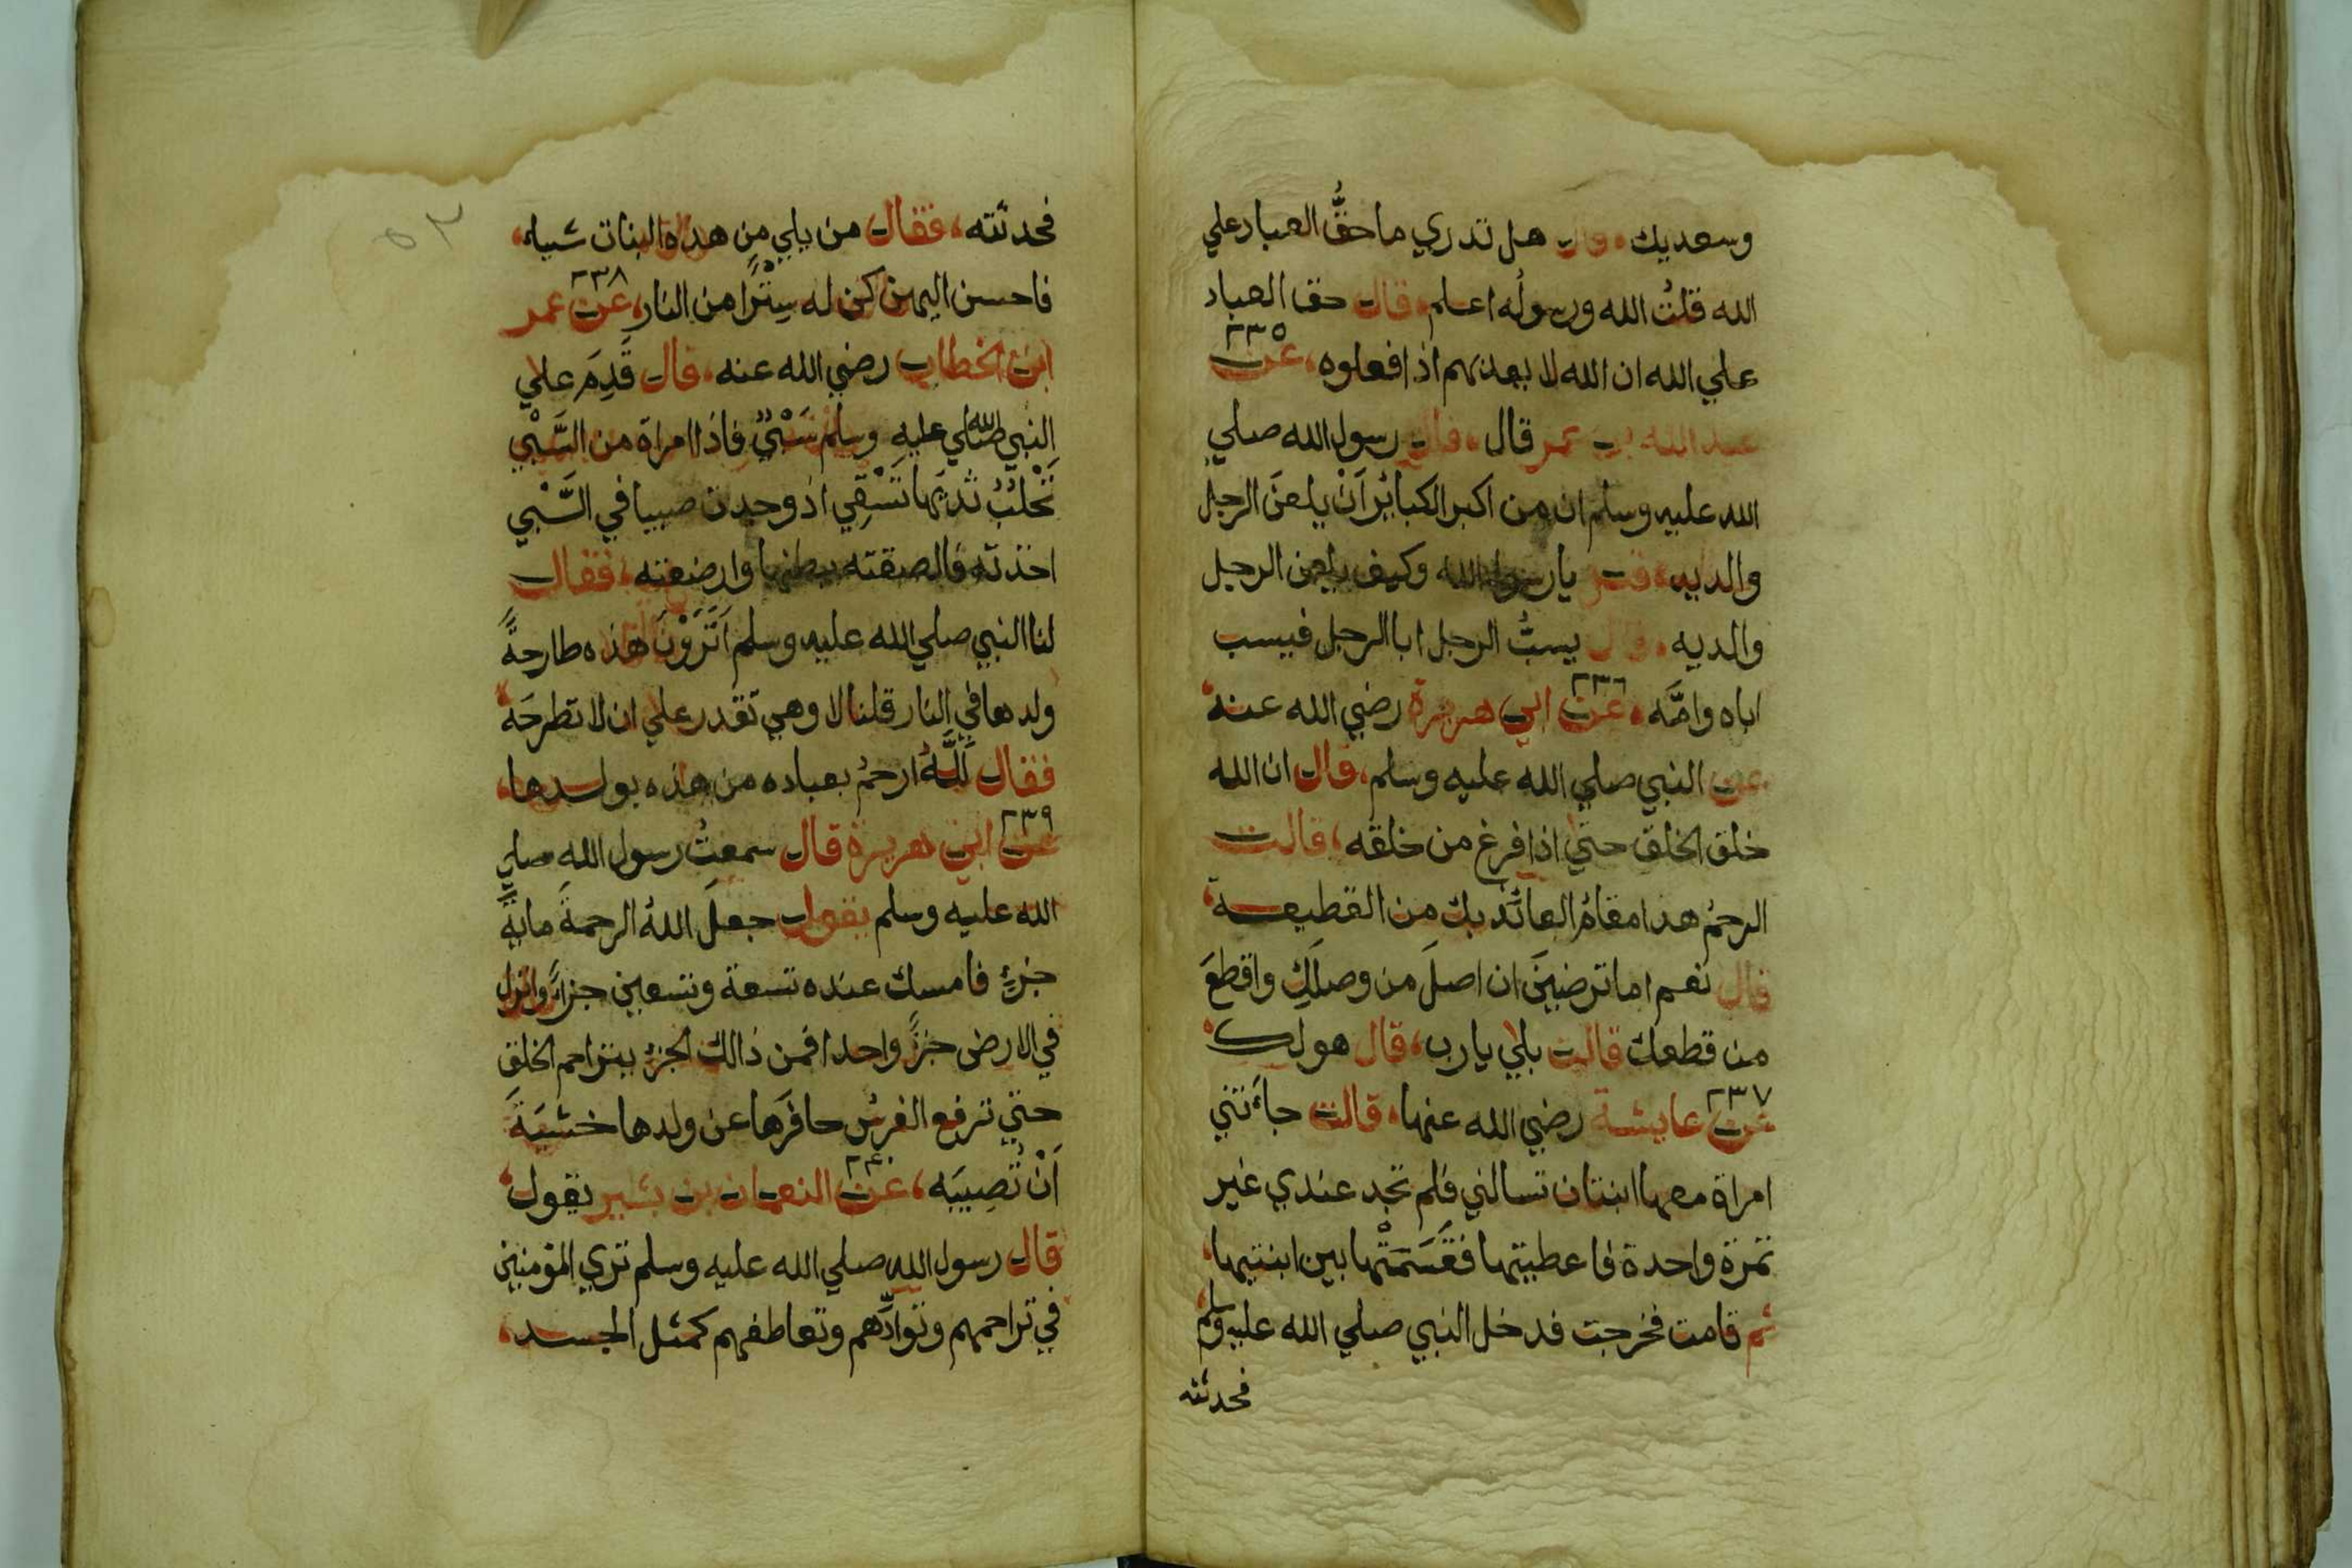 وسعديك، قال هل تدري ما حقُّ العباد علي
الله قلتُ الله ورسولُه اعلم، قال حق العباد
علي الله ان الله لا يعذبهم اذا فعلوه، عن ٢٣٥
عبد الله بن عمر قال، قال رسول الله صلي
الله عليه وسلم ان من اكبر الكبائر اَنْ يلعنَ الرجلُ
والديه، قيل يا رسول الله وكيف يلعن الرجل
والديه، قال يسبُّ الرجل ابا الرجل فيسب
اباه وامَّه، عن ٢٣٦ ابي هريرة رضي الله عنه
عن النبي صلي الله عليه وسلم، قال ان الله
خلق الخلق حتي اذا فرغ من خلقه، قالت
الرحمُ هذا مقامُ العائذ بك من القطيعة،
قال نعم اما ترضينَ ان اصلَ من وصلكِ واقطعَ
من قطعك قالت بلي يا رب، قال هو لك،
عن ٢٣٧ عايشة رضي الله عنها، قالت جاَءتني
امراة معها ابنتان تسالني فلم تجد عندي غير
تمرة واحدة فاعطيتها فقَسَمَتْها بين ابنتيها،
ثم قامت فخرجت فدخل النبي صلي الله عليه وسلم
فحدثته
٥٢
فحدثته، فقال من يلي من هذه البنات شيا،
فاحسن اليهن كن له سِتْرًا من النار، عن ٢٣٨ عمر
ابن الخطاب رضي الله عنه، قال قَدِمَ علي
النبي صلي الله عليه وسلم سَبْيٌ فاذا امراة من السَّبْيِ
تَحْلُبُ ثديَها تَسْقِي اذ وجدت صبيا في السَّبْي
اخذته فالصقته ببطنها وارضعته، فقال
لنا النبي صلي الله عليه وسلم اَتَرَوْنَ هذه طارحةً
ولدها في النار قلنا لا وهي تقدر علي ان لا تطرحَه،
فقال لَلَّهُ ارحمُ بعباده من هذه بولدها،
عن ٢٣٩ ابي هريرة قال سمعتُ رسول الله صلي
الله عليه وسلم يقول جعلَ اللهُ الرحمةَ مايةَ
جزءٍ فامسك عنده تسعة وتسعين جزاً وانزل
في الارض جزاً واحدا فمن ذالك الجزء يتراحم الخلق
حتي ترفع الفرسُ حافرَها عن ولدها خشيَةَ
اَنْ تُصِيبَه، عن ٢٤٠ النعمان بن بشير يقول،
قال رسول الله صلي الله عليه وسلم تري المؤمنين
في تراحمهم وتوادِّهم وتعاطفهم كمثل الجسد،